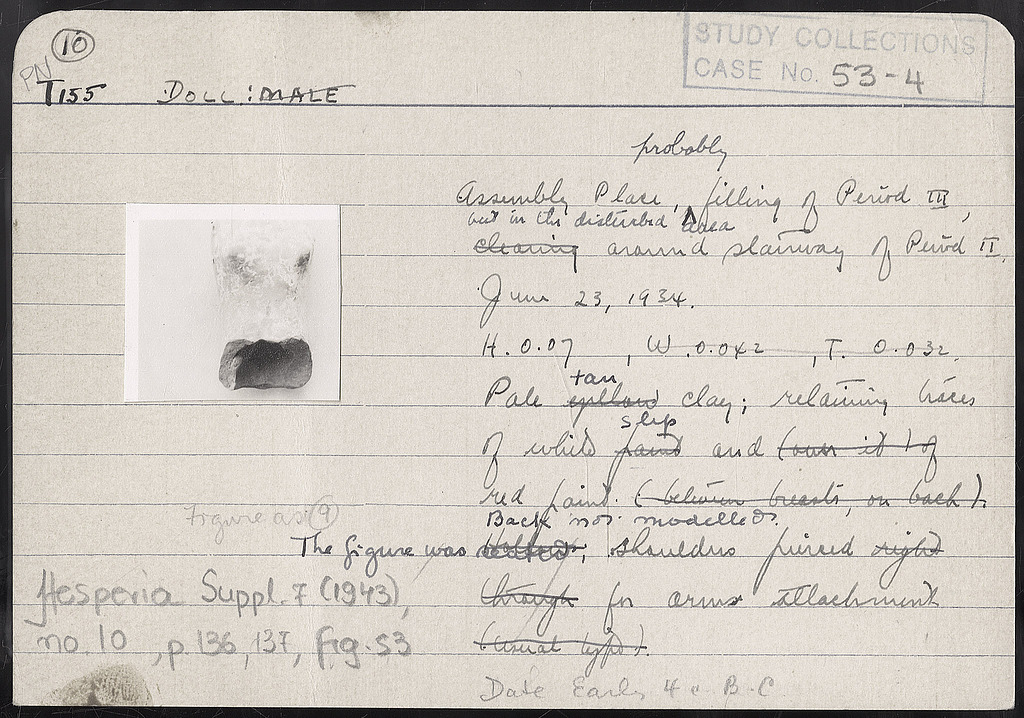 10
PN
STUDY COLLECTIONS
CASE No. 53-4
T155 DOLL: MALE
probably
Assembly Place, filling of Period III,
but in the disturbed area
cleaning around stairway of Period II.
June 23, 1934.
H. 0.07, W. 0.042, T. 0.032.
tan
Pale yellow clay; retaining traces
slip
of white paint and (over it) of
red paint. (between breasts, on back).
Back not modelled.
Figure as 9
The figure was shoulders pierced right
through for arms attachment
(usual type).
Hesperia Suppl. 7 (1943),
no. 10, p. 136, 137, fig. 53
Date Early 4 c B.C